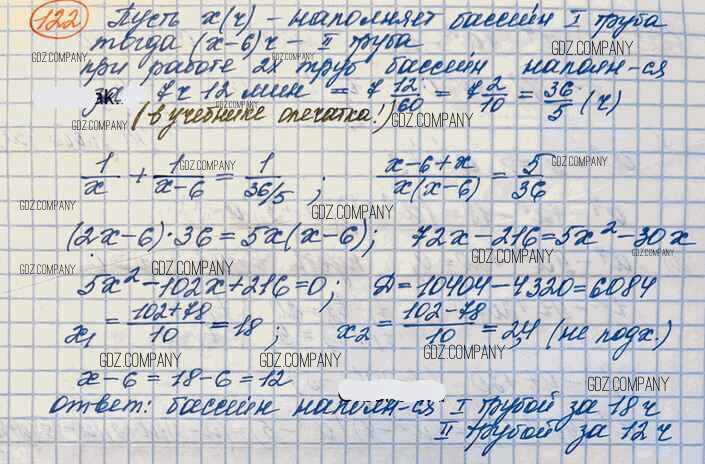 122 Пусть x(ч) - наполняет бассейн I труба
тогда (x-6)ч - II труба
GDZ.COMPANY GDZ.COMPANY GDZ.COMPANY
при работе 2х труб бассейн наполн-ся
за 7ч 12 мин = 7 12/60 = 7 2/10 = 36/5 (ч)
GDZ.COMPANY
(в учебнике опечатка!) GDZ.COMPANY
GDZ.COMPANY
1/x + 1/(x-6) = 1/(36/5) ; (x-6+x)/(x(x-6)) = 5/36
GDZ.COMPANY GDZ.COMPANY
GDZ.COMPANY GDZ.COMPANY
(2x-6)·36 = 5x(x-6); 72x-216=5x²-30x
GDZ.COMPANY GDZ.COMPANY
GDZ.COMPANY GDZ.COMPANY GDZ.COMPANY
5x²-102x+216=0; D=10404-4320=6084
x₁ = (102+78)/10 = 18; x₂ = (102-78)/10 = 2,4 (не подх.)
GDZ.COMPANY GDZ.COMPANY GDZ.COMPANY
x-6=18-6=12
GDZ.COMPANY
Ответ: бассейн наполн-ся I трубой за 18ч
II трубой за 12ч